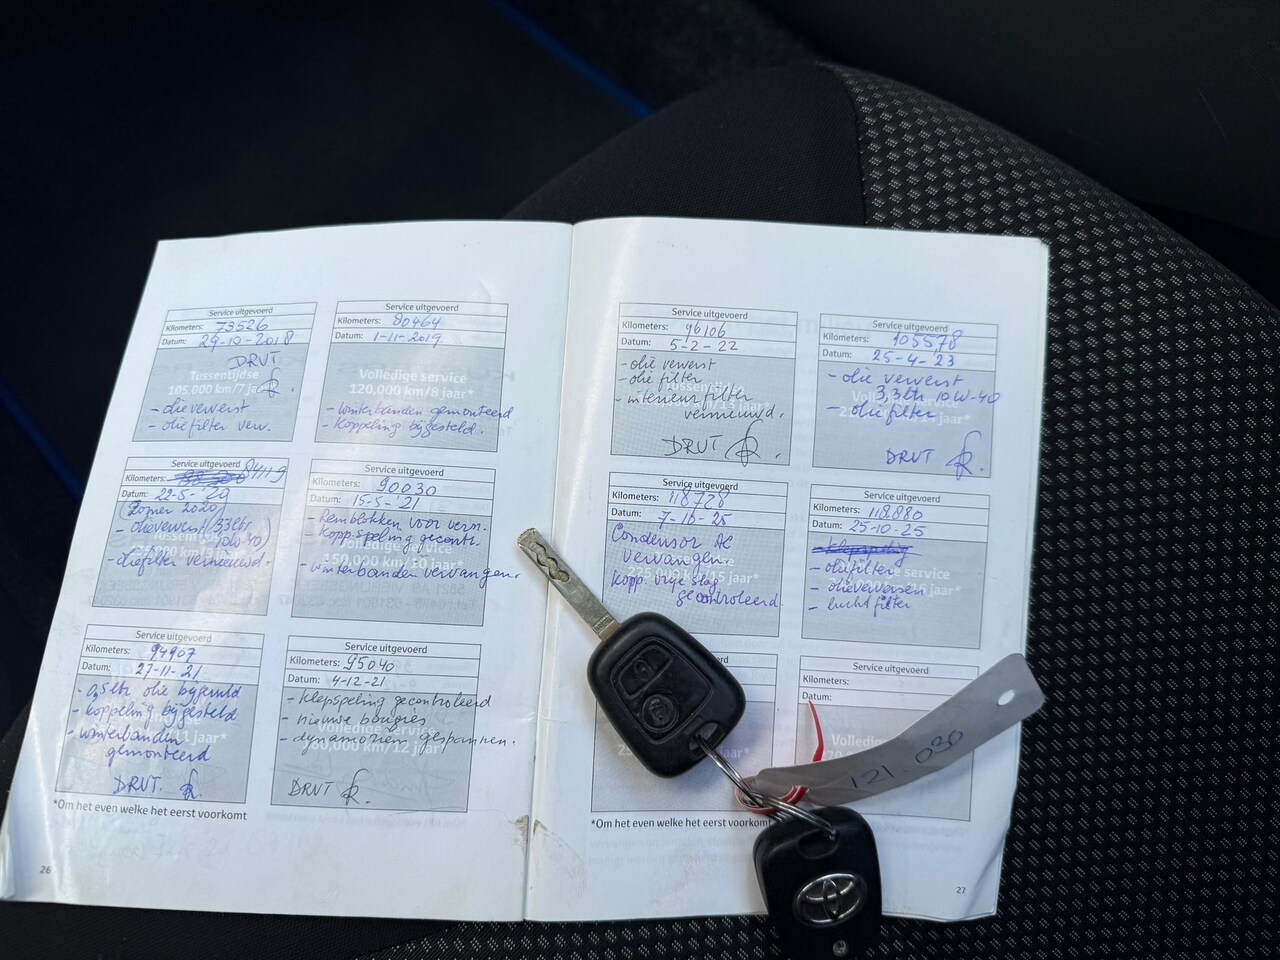 Service uitgevoerd
Kilometers: 73526
Datum: 29-10-2018
DRVT
Tussentijdse
105,000 km/7 jaar*
- olie ververst
- oliefilter verv.
Service uitgevoerd
Kilometers: 80464
Datum: 1-11-2019
Volledige service
120,000 km/8 jaar*
- winterbanden gemonteerd
- Koppeling bijgesteld.
Service uitgevoerd
Kilometers: 84119
Datum: 22-5-'20
(Zomer 2020)
- olie ververst (3,3 ltr
10W40)
- oliefilter vernieuwd.
Service uitgevoerd
Kilometers: 90030
Datum: 15-5-'21
- Remblokken voor verv.
- Kopp. speling gecontr.
- winterbanden vervangen.
Service uitgevoerd
Kilometers: 94907
Datum: 27-11-21
- 0,5 ltr olie bijgevuld
- koppeling bijgesteld
- winterbanden
gemonteerd
DRVT
Service uitgevoerd
Kilometers: 95040
Datum: 4-12-21
- klepspeling gecontroleerd
- nieuwe bougies
- dynamoriem gespannen.
180,000 km/12 jaar*
DRVT
*Om het even welke het eerst voorkomt
26
Service uitgevoerd
Kilometers: 96106
Datum: 5-2-22
- olie ververst
- olie filter
- interieurfilter
vernieuwd.
DRVT
Service uitgevoerd
Kilometers: 105578
Datum: 25-4-'23
- olie ververst
3,3 ltr 10W-40
- oliefilter
DRVT
Service uitgevoerd
Kilometers: 118728
Datum: 7-10-25
Condensor AC
vervangen.
225,000 km/15 jaar*
Kopp. vrije slag
gecontroleerd
Service uitgevoerd
Kilometers: 118880
Datum: 25-10-25
- oliefilter
- olieverversen
- luchtfilter
Service uitgevoerd
Kilometers:
Datum:
Volledig
*Om het even welke het eerst voorkomt
27
121.030